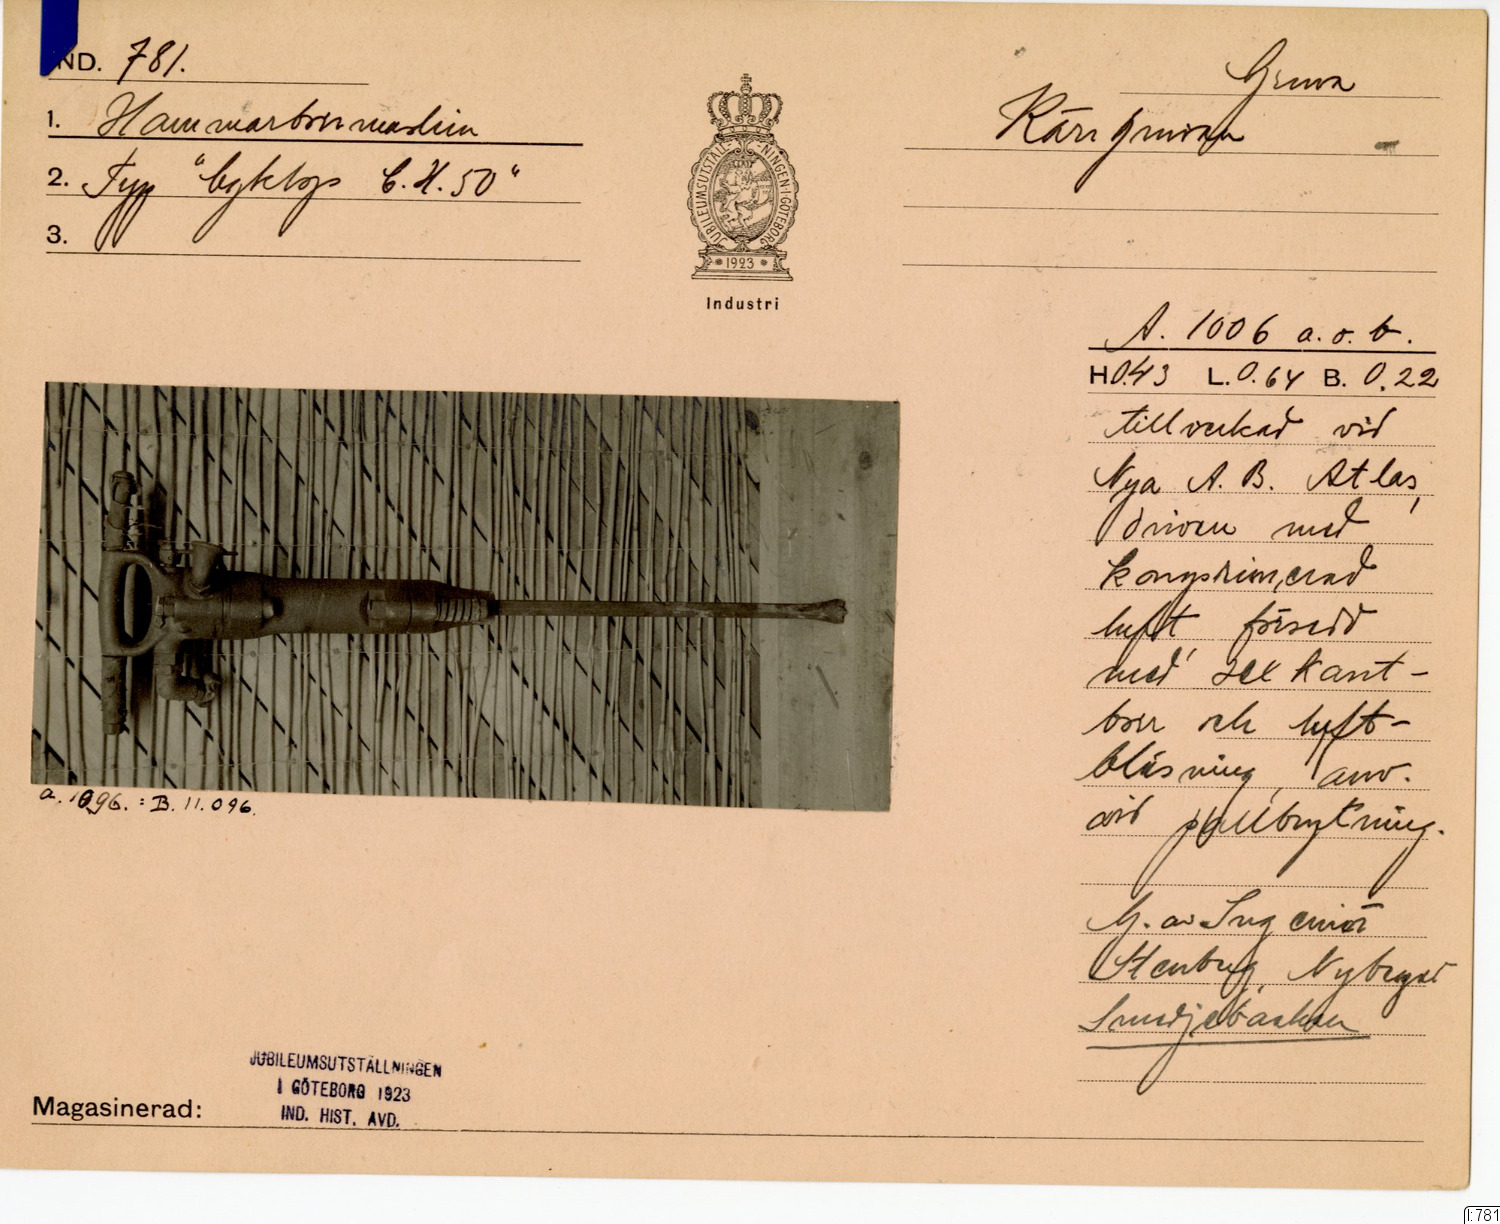 IND. 781.
1. Hammarborrmaskin
2. Typ "Cyklop C.H. 50"
3.
JUBILEUMSUTSTÄLLNINGEN I GÖTEBORG
1923
Industri
Gruva
Kärrgruvan
A. 1006 a. o. b.
H 0.43 L. 0.64 B. 0.22
tillverkad vid
Nya A. B. Atlas,
driven med
komprimerad
luft, försedd
med sexkant-
borr och luft-
blåsning, anv.
vid pallbrytning.
G. av Ingeniör
Stenberg, Nyberget
Smedjebacken
a. 1096. : B. 11.096.
JUBILEUMSUTSTÄLLNINGEN
I GÖTEBORG 1923
IND. HIST. AVD.
Magasinerad:
I:781